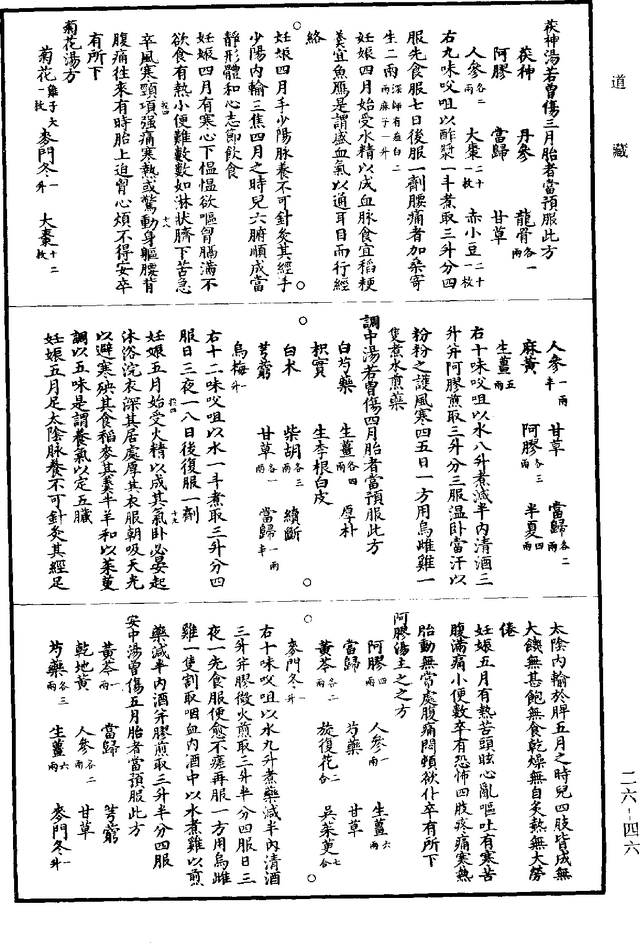 道藏
茯神湯若曾傷三月胎者當預服此方
茯神 丹參 龍骨各一兩
阿膠 當歸 甘草
人參各二兩 大棗二十一枚 赤小豆二十一枚
右九味㕮咀以酢漿一斗煮取三升分四
服先食服七日後服一劑腰痛者加桑寄
生二兩深師有薤白二兩麻子一升
妊娠四月始受水精以成血脉食宜稻粳
羹宜魚鴈是謂盛血氣以通耳目而行經
絡
妊娠四月手少陽脉養不可針灸其經手
少陽內輸三焦四月之時兒六腑順成當
靜形體和心志節飲食
妊娠四月有寒心下慍慍欲嘔胷膈滿不
欲食有熱小便難數數如淋狀臍下苦急
卒風寒頸項强痛寒熱或驚動身軀腰背
腹痛往來有時胎上迫胷心煩不得安卒
有所下
菊花湯方
菊花雞子大一枚 麥門冬一升 大棗十二枚
人參一兩半 甘草 當歸各二兩
麻黃 阿膠各三兩 半夏四兩
生薑五兩
右十味㕮咀以水八升煮減半內清酒三
升幷阿膠煎取三升分三服溫卧當汗以
粉粉之護風寒四五日一方用烏雌雞一
隻煮水煎藥
調中湯若曾傷四月胎者當預服此方
白芍藥 生薑各四兩 厚朴
枳實 生李根白皮
白术 柴胡各三兩 續斷
芎藭 甘草各一兩 當歸一兩半
烏梅一升
右十二味㕮咀以水一斗煮取三升分四
服日三夜一八日後復服一劑
妊娠五月始受火精以成其氣卧必晏起
沐浴浣衣深其居處厚其衣服朝吸天光
以避寒殃其食稻麥其羹牛羊和以茱萸
調以五味是謂養氣以定五臟
妊娠五月足太陰脉養不可針灸其經足
太陰內輸於脾五月之時兒四肢皆成無
大饑無甚飽無食乾燥無自炙熱無大勞
倦
妊娠五月有熱苦頭眩心亂嘔吐有寒苦
腹滿痛小便數卒有恐怖四肢疼痛寒熱
胎動無常處腹痛悶頓欲仆卒有所下
阿膠湯主之之方
阿膠四兩 人參一兩 生薑六兩
當歸 芍藥 甘草
黃芩各二兩 旋復花二合 吳茱萸七合
麥門冬一升
右十味㕮咀以水九升煮藥減半內清酒
三升幷膠微火煎取三升半分四服日三
夜一先食服便愈不瘥再服一方用烏雌
雞一隻割取咽血內酒中以水煮雞以煎
藥減半內酒幷膠煎取三升半分四服
安中湯曾傷五月胎者當預服此方
黃芩一兩 當歸 芎藭
乾地黃 人參各二兩 甘草
芍藥各三兩 生薑六兩 麥門冬一升
二六－四六